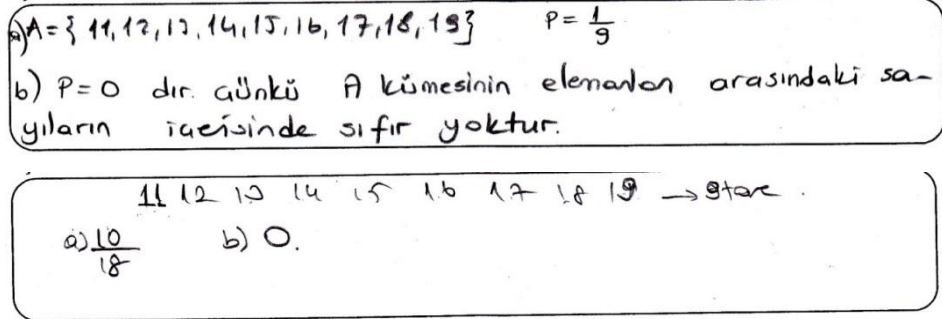 a) A = { 11, 12, 13, 14, 15, 16, 17, 18, 19 } P = 1/9
b) P = 0 dır. Günkü A kümesinin elemanları arasındaki sa-
yıların içerisinde sıfır yoktur.
11 12 13 14 15 16 17 18 19 → 9 tane .
a) 10/18 b) 0.